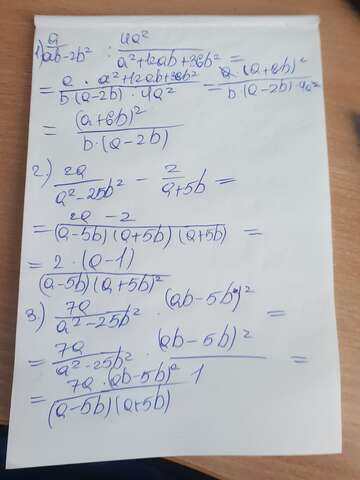 1) a/(ab-2b²) : 4a²/(a²+12ab+36b²) =
= a · a²+12ab+36b² / b·(a-2b)·4a² = a·(a+6b)² / b·(a-2b)·4a²
= (a+6b)² / b·(a-2b)
2) 2a/(a²-25b²) - 2/(a+5b) =
= 2a-2 / (a-5b)(a+5b)(a+5b) =
= 2·(a-1) / (a-5b)(a+5b)²
3) 7a/(a²-25b²) · (ab-5b²)² =
= 7a/(a²-25b²) · (ab-5b)²/1 =
= 7a·(ab-5b)² / (a-5b)(a+5b)